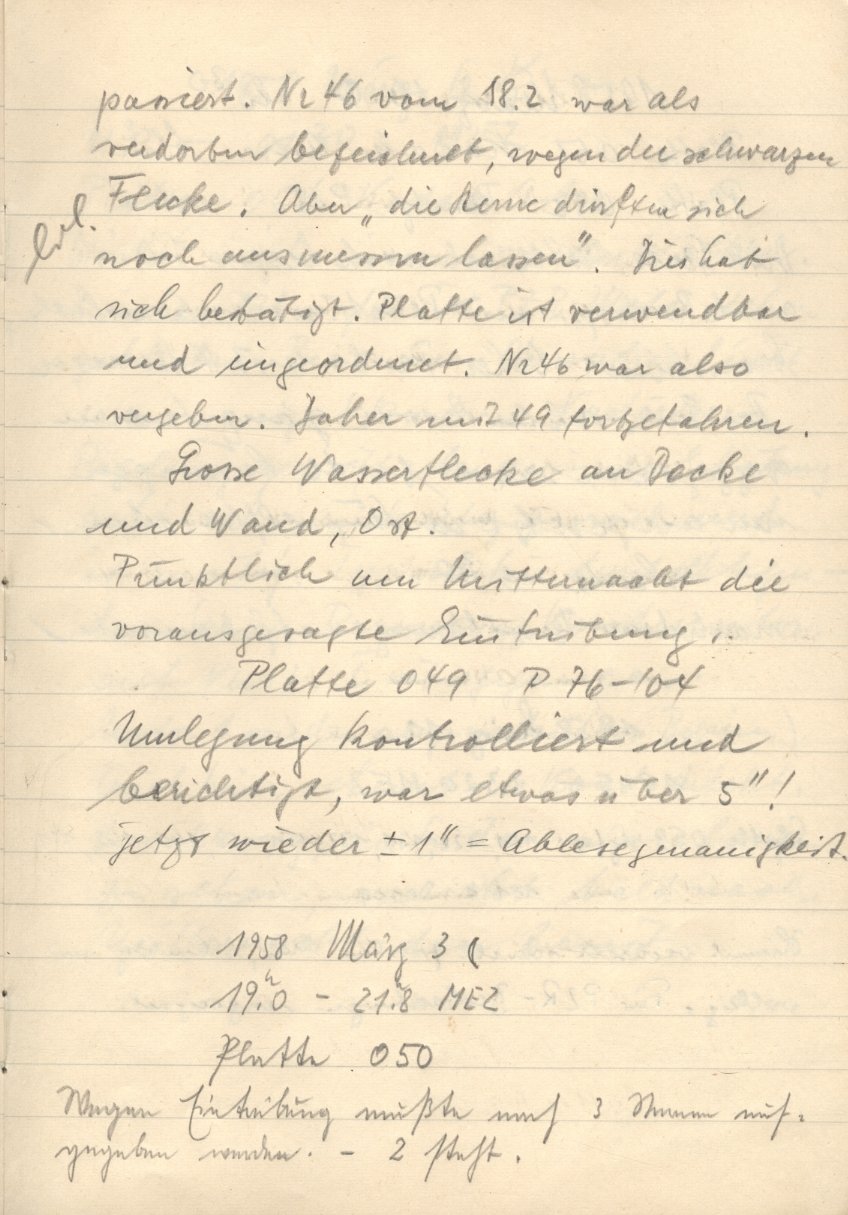 passiert. Nr 46 vom 18.2 war als
verdorben bezeichnet, wegen der schwarzen
Flecke. Aber „die Sterne dürften sich
noch ausmessen lassen". Dies hat
sich bestätigt. Platte ist verwendbar
und eingeordnet. Nr 46 war also
vergeben. Daher mit 49 fortgefahren.
Grosse Wasserflecke an Decke
und Wand, Ost.
Pünktlich um Mitternacht die
vorausgesagte Eintrübung.
Platte 049 P 76–104
Umlegung kontrolliert und
berichtigt, war etwas über 5"!
jetzt wieder ± 1" = Ablesegenauigkeit.
1958 März 3 ☾
19.h0 – 21.h8 MEZ
Platte 050
Wegen Eintrübung mußte nach 3 Sternen auf-
gegeben werden. – 2 steht.